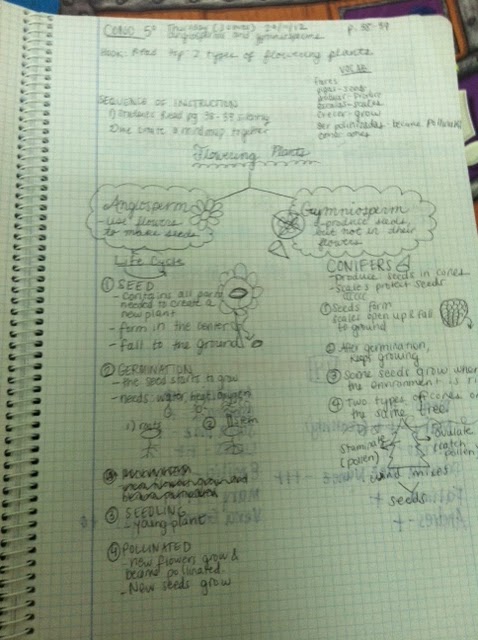 CONO 5° Thursday
p. 38-39
angiosperms and gymnosperms
BOOK: READ 2 types of flowering plants
VOCAB
producir - produce
escamas - scales
crecer - grow
ser polinizadas - become pollinated
SEQUENCE OF INSTRUCTION
1) Students Read pg 38-39 silently
2) we create a roadmap together
Flowering Plants
Angiosperm
- use flowers
to make seeds
Gymniosperm
- produce seeds,
but not in their
flowers
Life Cycle
① SEED
- contains all parts
needed to create a
new plant
- form in the center
- fall to the ground
② GERMINATION
- the seed starts to grow
- needs: water, heat, oxygen
1) roots
② stem
③ SEEDLING
- young plant
④ POLLINATED
- new flowers grow &
become pollinated.
- New seeds grow
CONIFERS
- produce seeds in cones
- scales protect seeds
① Seeds form
scales open up & fall
to ground
② After germination,
keeps growing
③ Some seeds grow when
the environment is
④ Two types of cones on
the same tree!
staminate
(pollen)
ovulate
(catch
pollen)
wind mixes
seeds